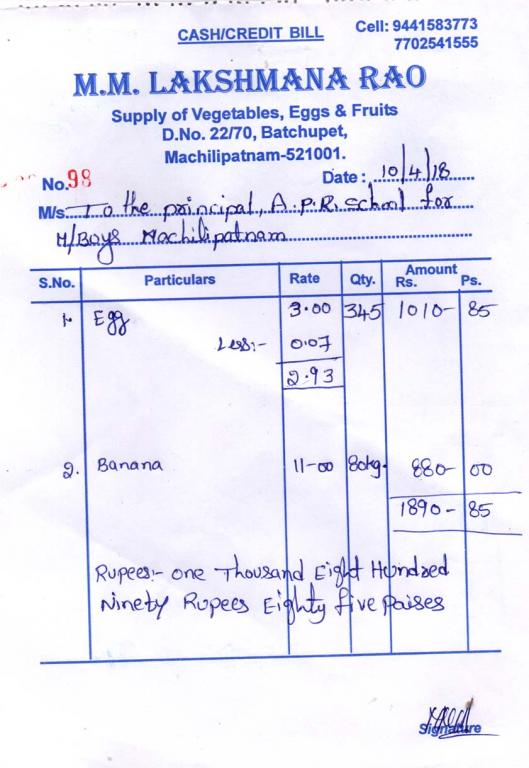 CASH/CREDIT BILL
Cell: 9441583773
7702541555
M.M. LAKSHMANA RAO
Supply of Vegetables, Eggs & Fruits
D.No. 22/70, Batchupet,
Machilipatnam-521001.
No. 98 Date: 10/4/18
M/s. To the principal, A.P.R. school for
M/Boys Machilipatnam
S.No. Particulars Rate Qty. Amount Rs. Ps.
1. Egg 3.00 345 1010- 85
Less:- 0.07
2.93
2. Banana 11-00 80kg. 880- 00
1890- 85
Rupees:- one Thousand Eight Hundred
Ninety Rupees Eighty five paises
Signature